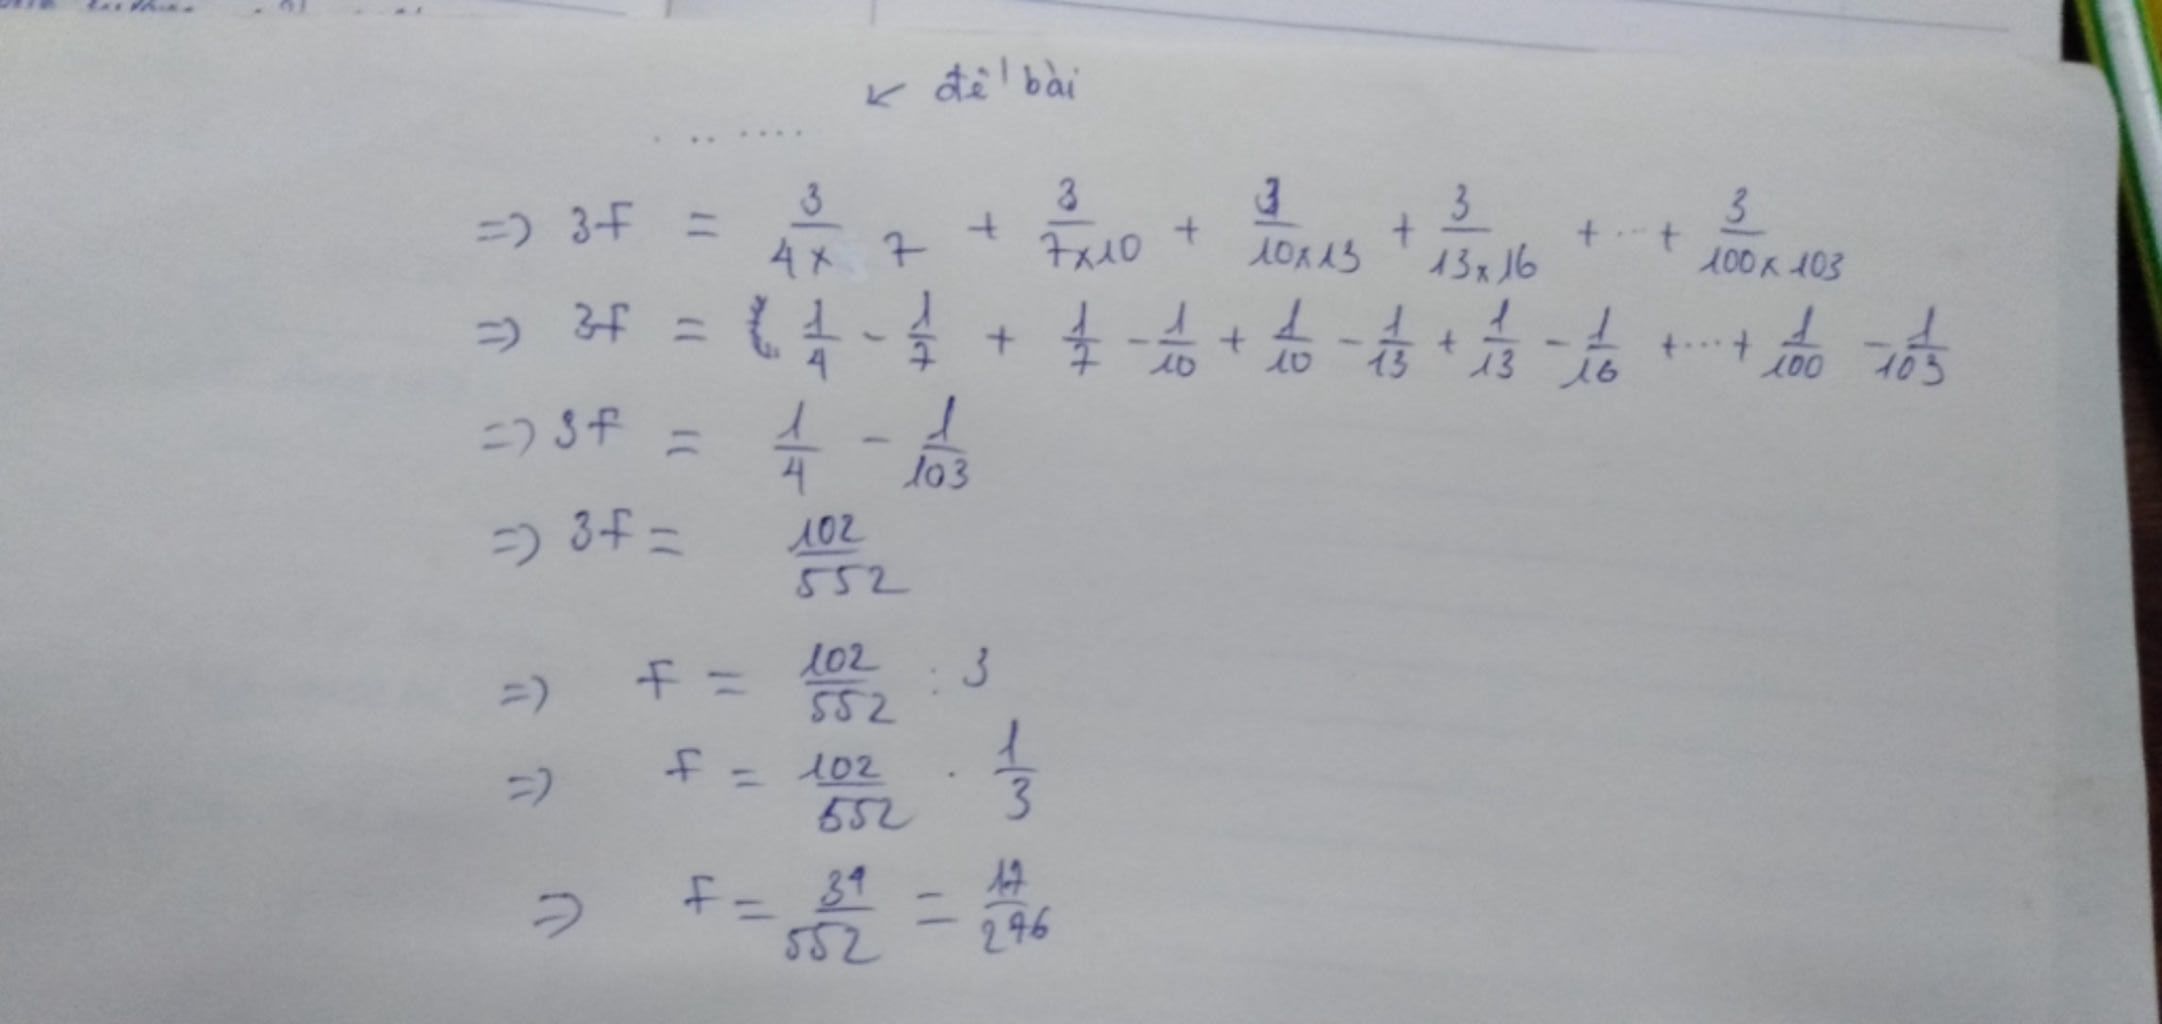 ↙ đề bài
.. .. ....
=> 3F = 3/(4x 7) + 3/(7x10) + 3/(10x13) + 3/(13x16) + ... + 3/(100x103)
=> 3F = 1/4 - 1/7 + 1/7 - 1/10 + 1/10 - 1/13 + 1/13 - 1/16 + ... + 1/100 - 1/103
=> 3F = 1/4 - 1/103
=> 3F = 102/552
=> F = 102/552 : 3
=> F = 102/552 . 1/3
=> F = 34/552 = 17/276